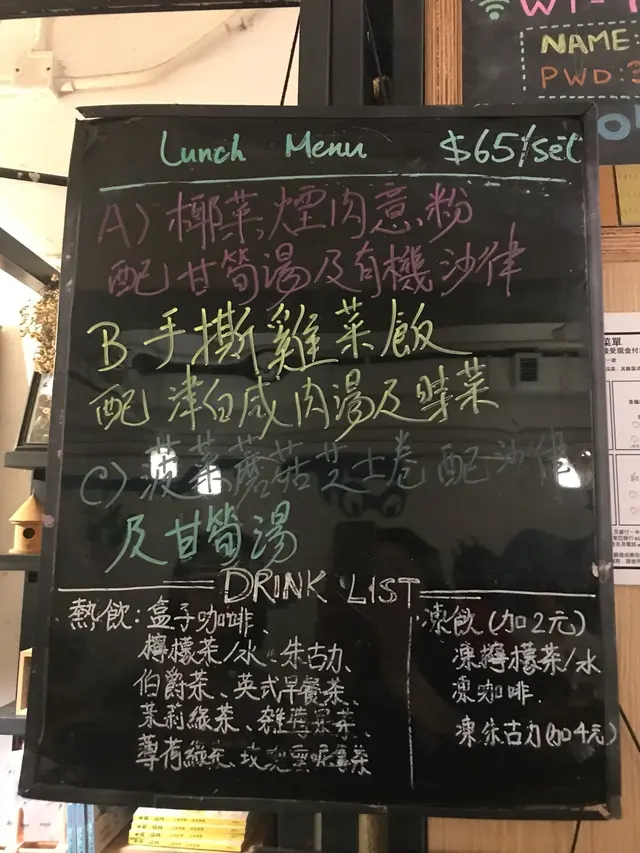 Lunch Menu $65/set
A) 椰菜煙肉意粉
配甘筍湯及有機沙律
B 手撕雞菜飯
配津白咸肉湯及時菜
C) 菠菜蘑菇芝士卷配沙律
及甘筍湯
DRINK LIST
熱飲：盒子咖啡、
檸檬茶/水、朱古力、
伯爵茶、英式早餐茶、
茉莉綠茶、
薄荷綠茶
凍飲(加2元)
凍檸檬茶/水
凍咖啡.
凍朱古力(加4元)
NAME:
PWD:3
菜單